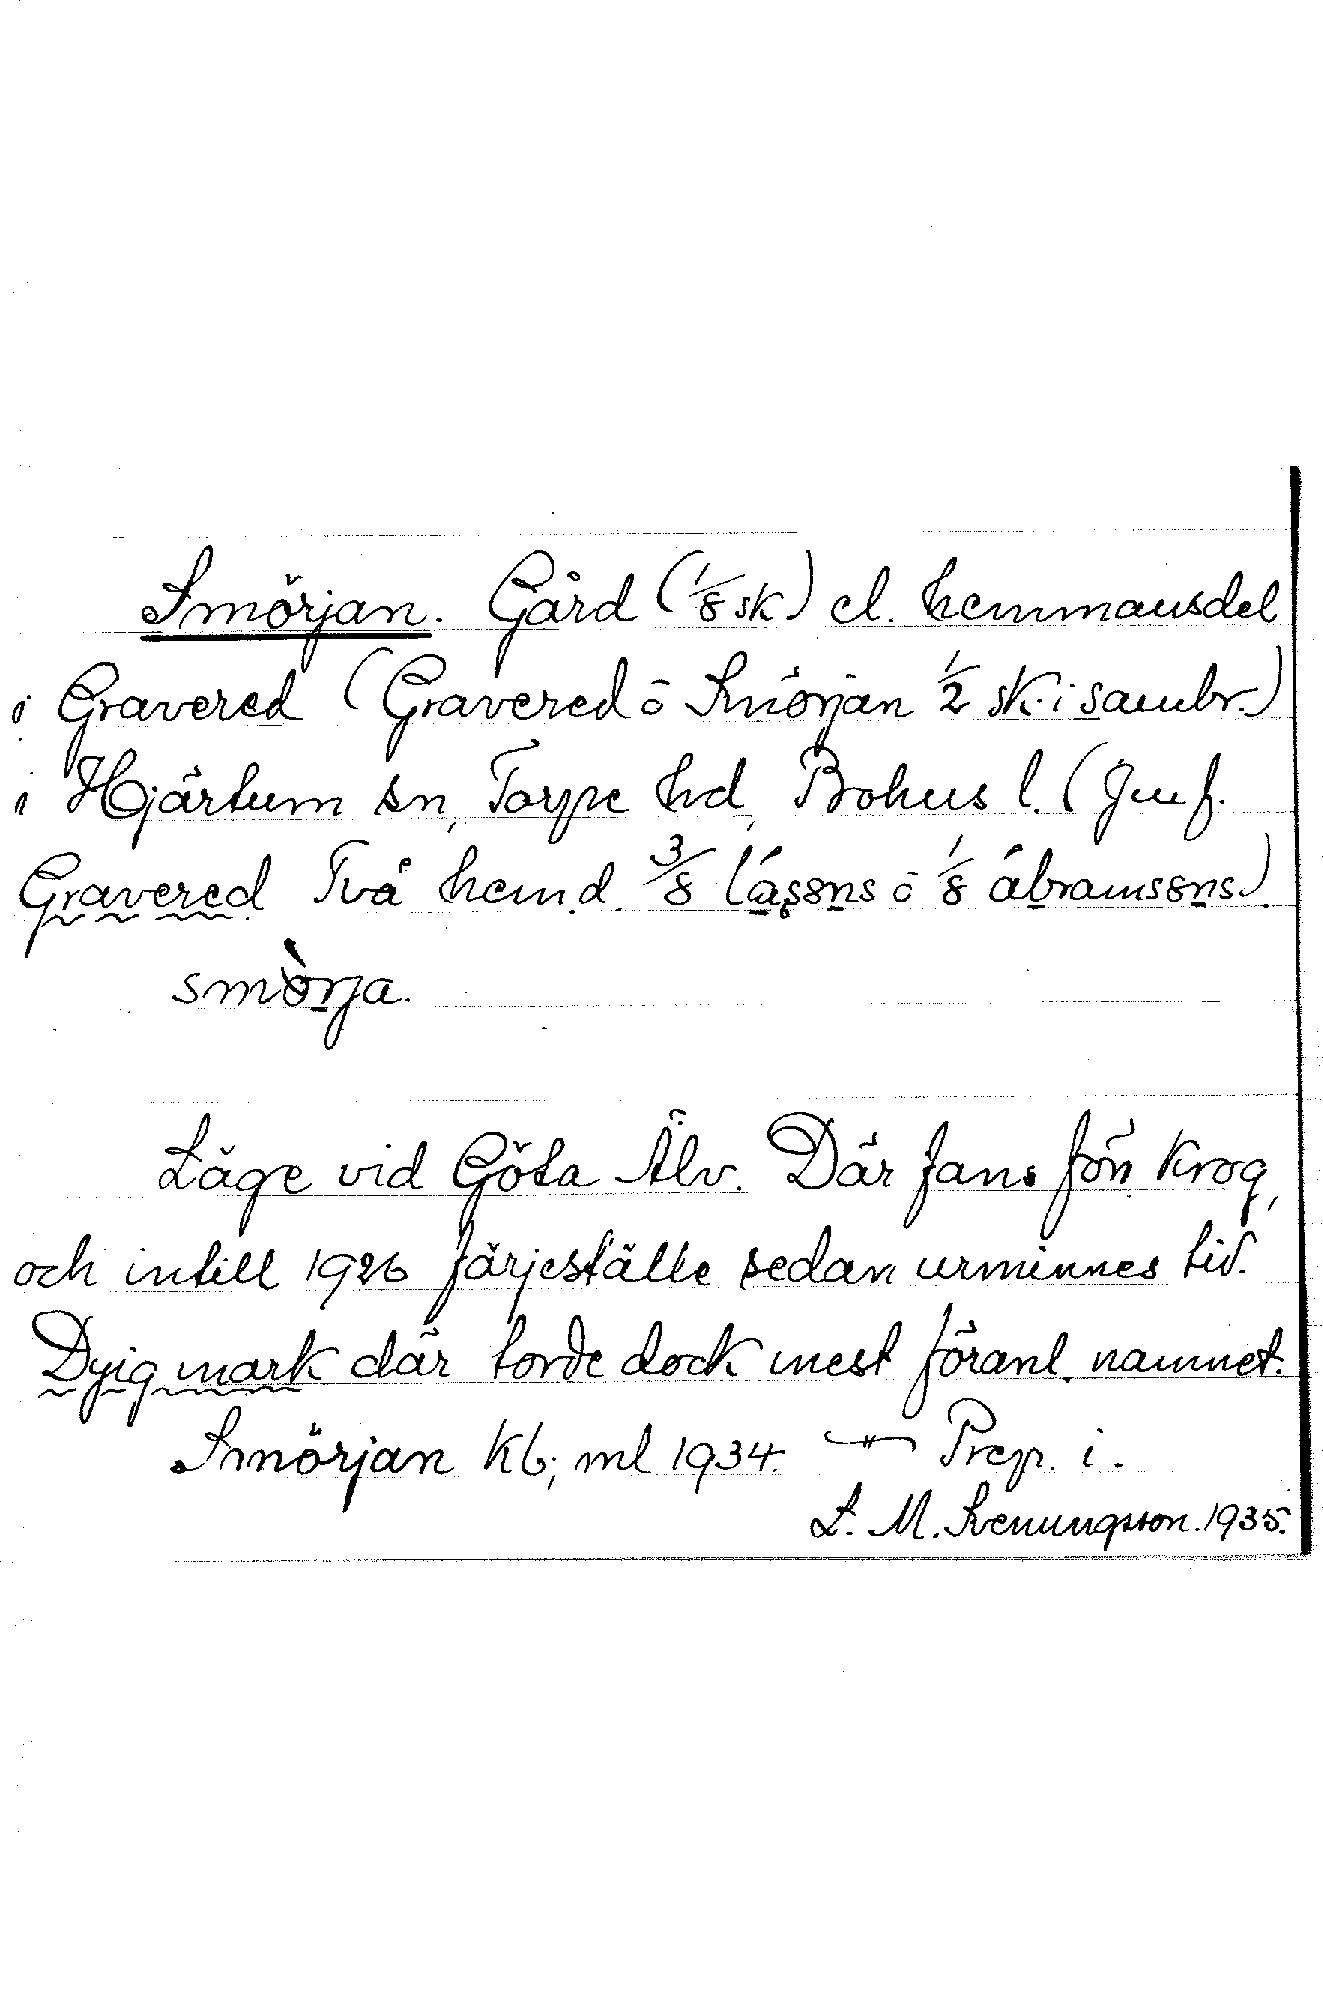 Smörjan. Gård (1/8 sk) el. hemmansdel
i Gravered (Gravered o Smörjan 1/2 sk. i sambr.)
i Hjärtum sn, Torpe hd, Bohus l. (Jmf.
Gravered Två hem.d. 3/8 lásons o 1/8 ábramsons.)
smòrja.
Läge vid Göta Älv. Där fans förr Krog,
och intill 1926 färjeställe sedan urminnes tid.
Dyig mark där torde dock mest föranl. namnet.
Smörjan Kb; ml 1934. Prep. i.
L. M. Svenungsson. 1935.